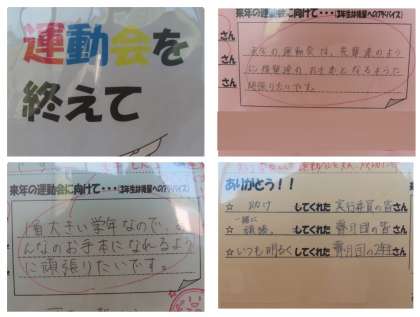 運動会を
終えて
来年の運動会に向けて・・・(3年生は後輩へのアドバイス)
さん
さん
さん
来年の運動会は、先輩達のよう
に後輩達のお手本となるよう
頑張りたいです。
来年の運動会に向けて・・・(3年生は後輩へのアドバイス)
1番大きい学年なので、み
んなのお手本になれるよう
に頑張りたいです。
ありがとう!!
☆ 助け してくれた 実行委員の皆さん
一緒に
☆ 頑張 してくれた 団の皆さん
☆ いつも明るく してくれた 団の さん